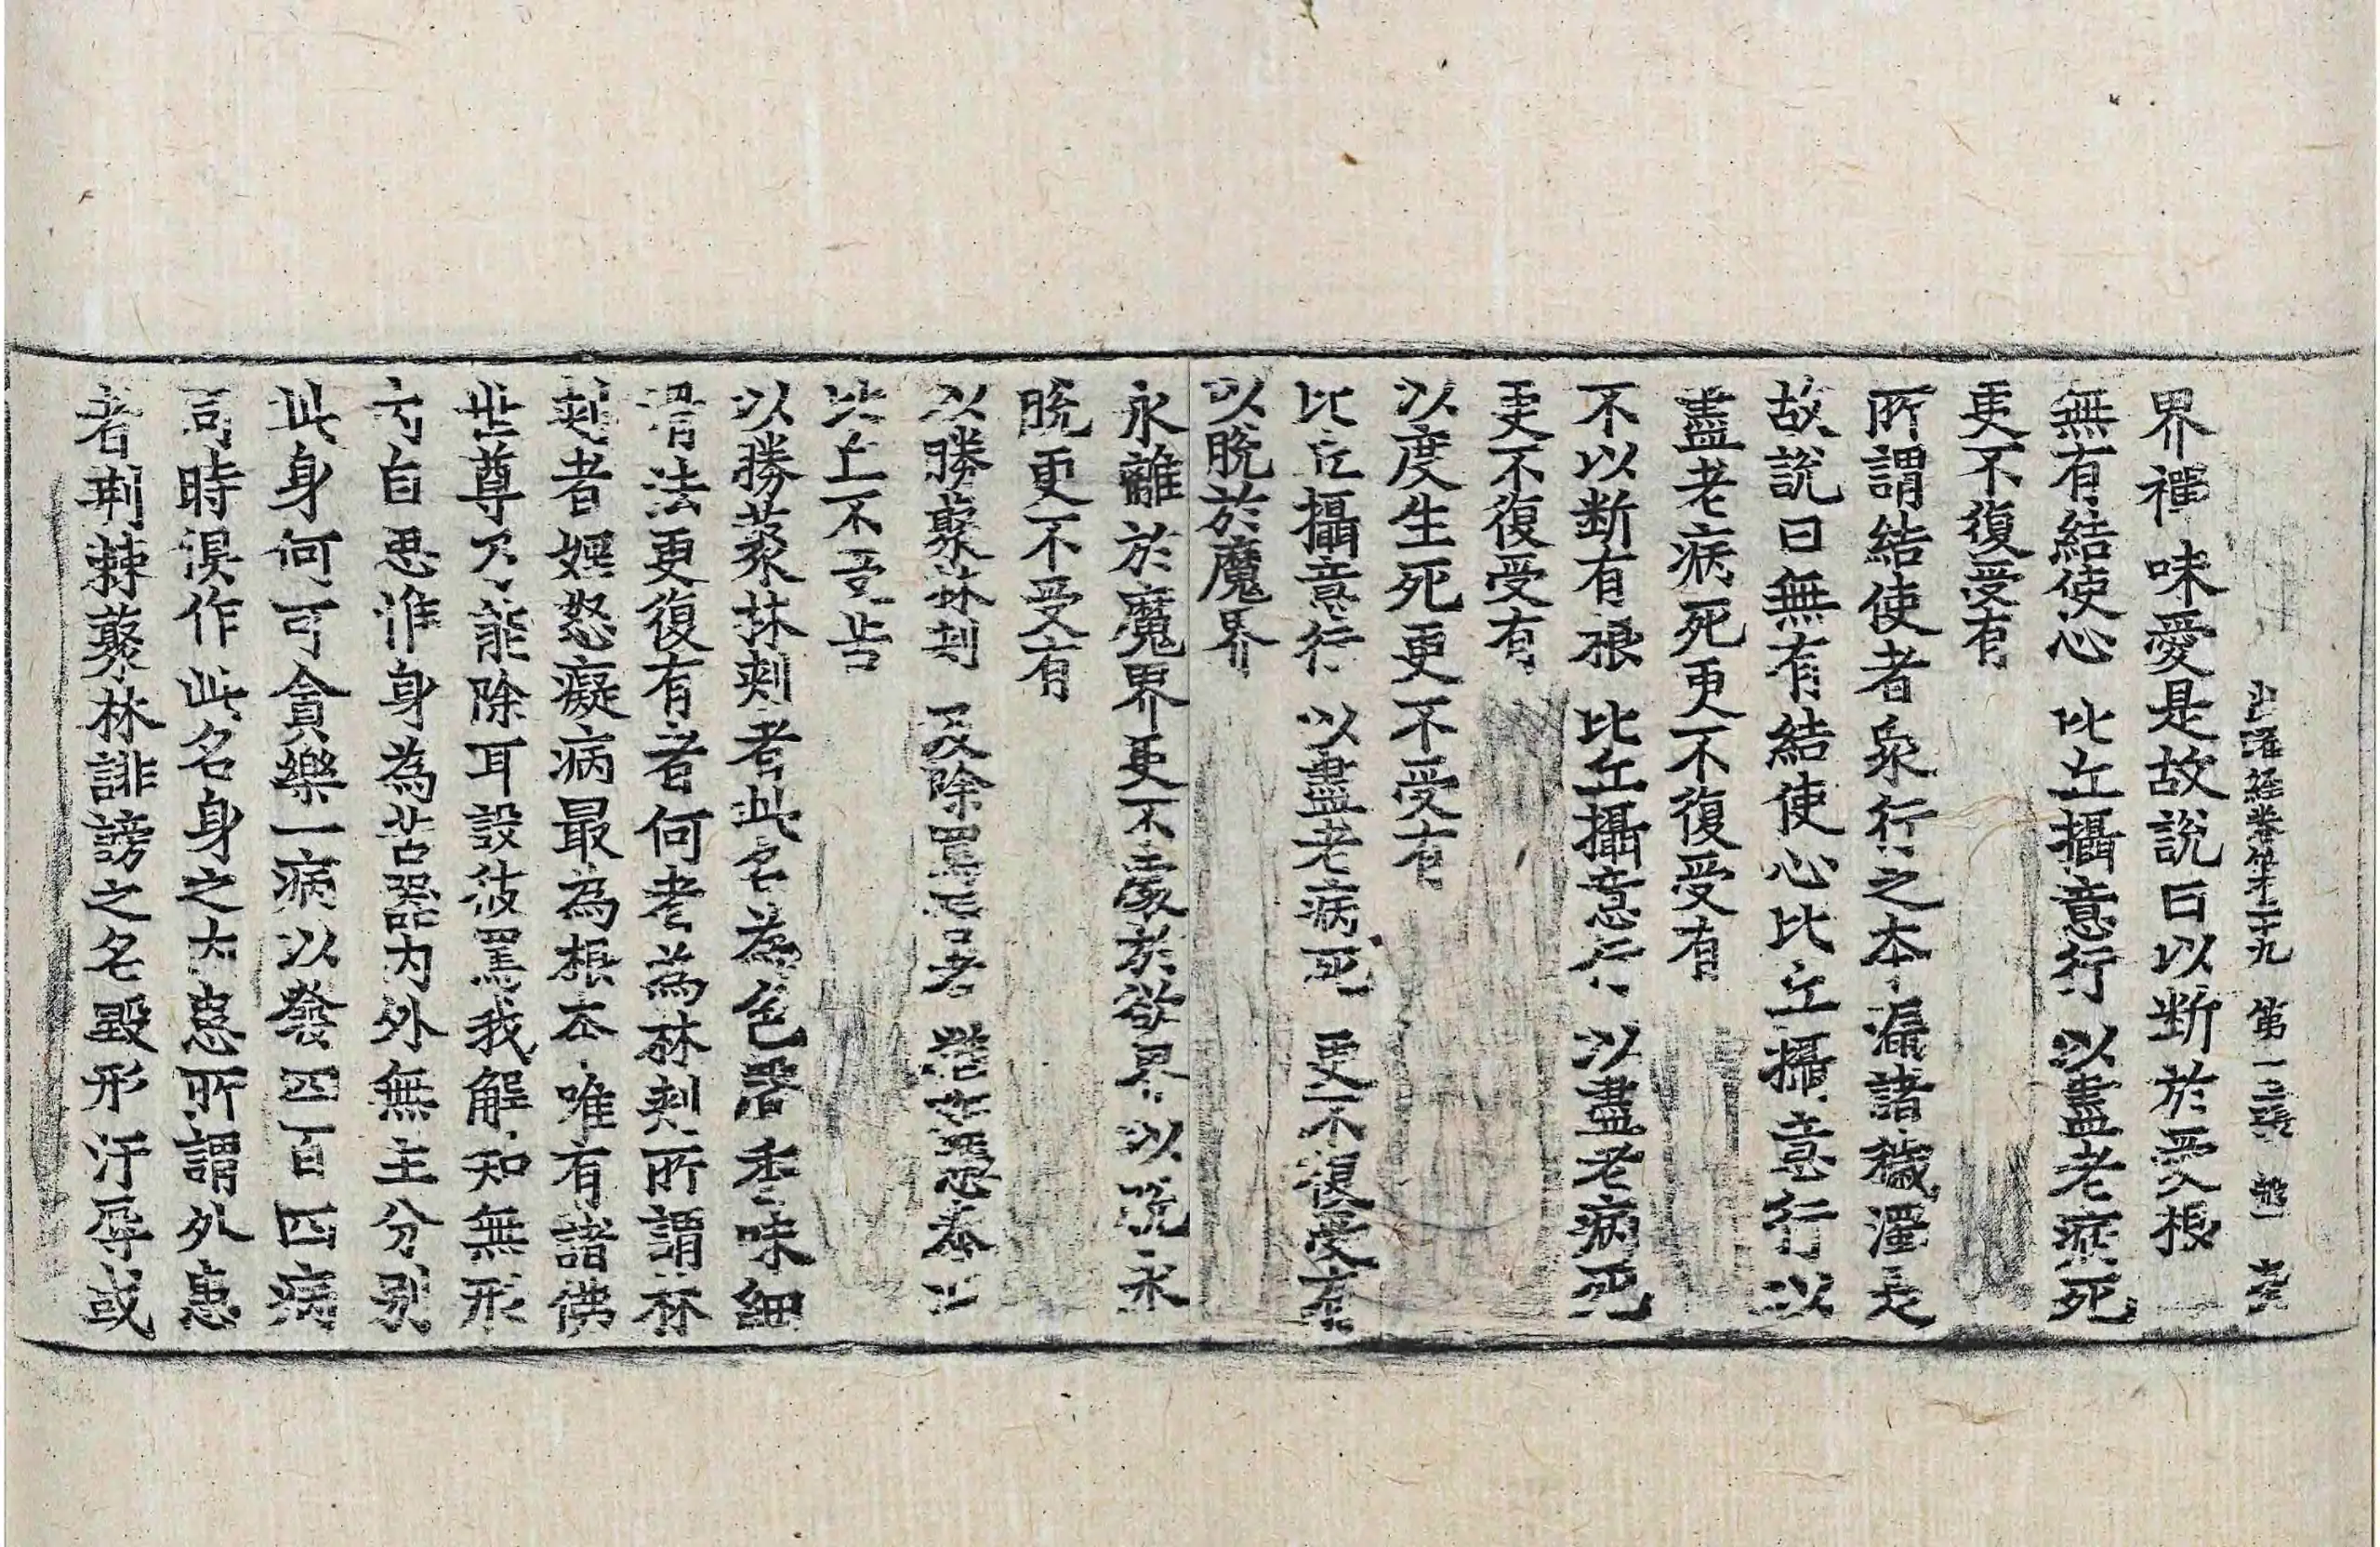 出曜經卷第二十九 第一三張
界禪味愛是故說曰以斷於受根
無有結使心 比丘攝意行 以盡老病死
更不復受有
所謂結使者衆行之本漏諸穢濁是
故說曰無有結使心比丘攝意行以
盡老病死更不復受有
不以斷有根 比丘攝意行 以盡老病死
更不復受有
以度生死更不受有
比丘攝意行 以盡老病死 更不復受有
以脫於魔界
永離於魔界更不處於欲界以脫永
脫更不受有
以勝藂林刺 及除罵詈者 猶如憑泰山
比丘不受苦
以勝藂林刺者此名為色聲香味細
滑法更復有者何者為林刺所謂林
刺者婬怒癡病最為根本唯有諸佛
世尊乃能除耳設彼罵我解知無形
內自思惟身為苦器內外無主分別
此身何可貪樂一病以發四百四病
同時俱作此名身之大患所謂外患
者荆棘藂林誹謗之名毀形汙辱或